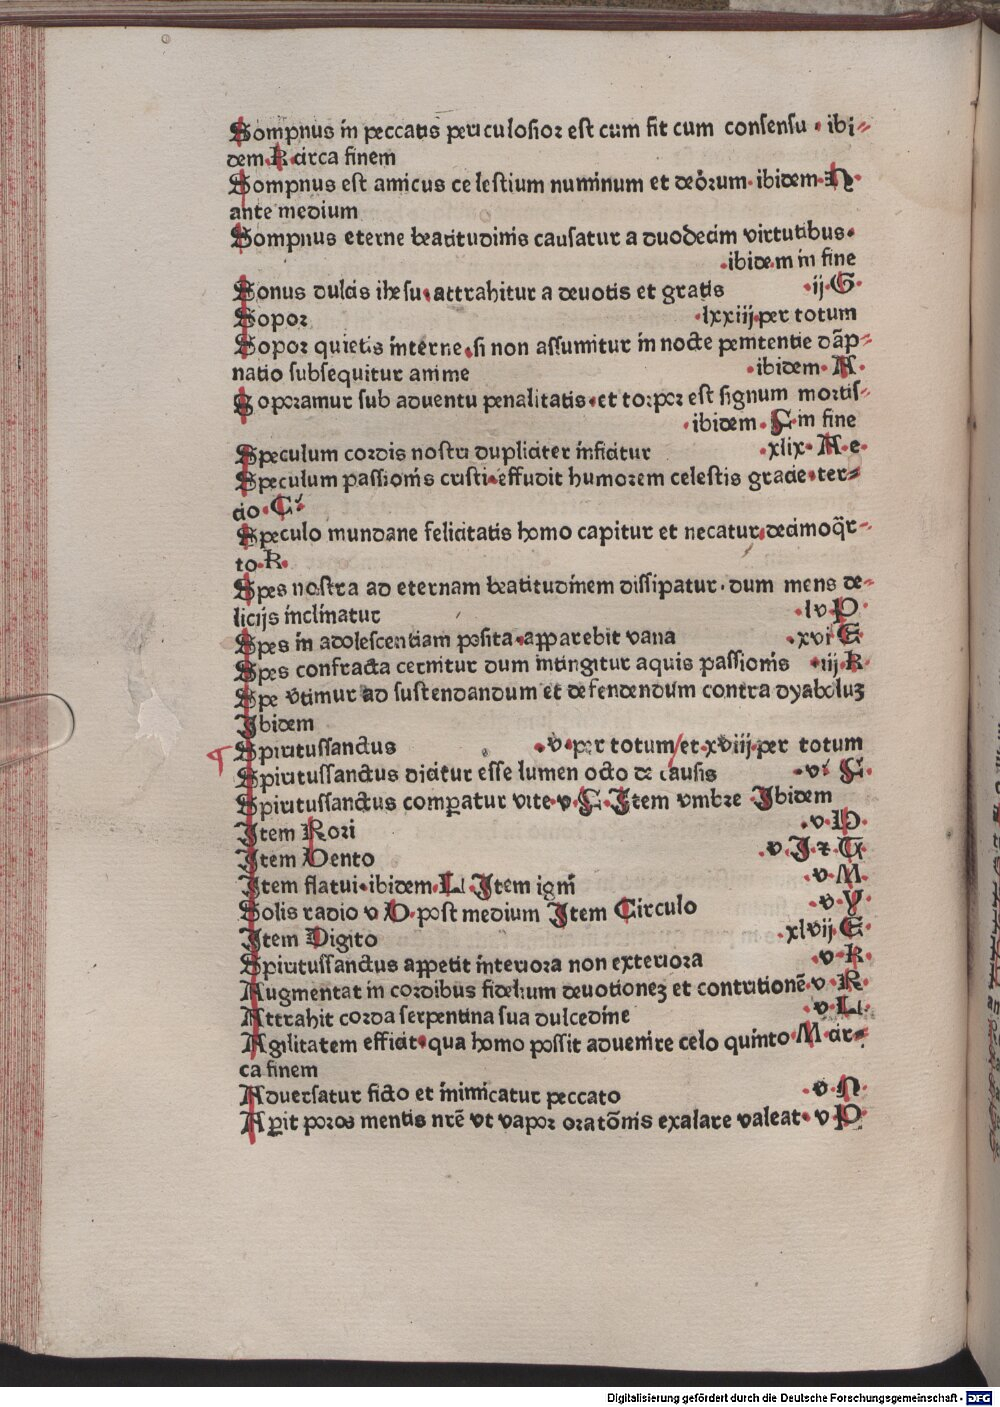 Sompnus in peccatis periculosior est cum fit cum consensu · ibi-
dem· R circa finem
Sompnus est amicus celestium numinum et deōrum· ibidem· N·
ante medium
Sompnus eterne beatitudinis causatur a duodecim virtutibus·
·ibidem in fine
Sonus dulcis ihesu· attrahitur a deuotis et gratis ·ij G·
Sopor ·lxxiij·per totum
Sopor quietis interne·si non assumitur in nocte penitentie dāp-
natio subsequitur anime ·ibidem· A·
Soporamur sub aduentu penalitatis·et torpor est signum mortis-
·ibidem· F·in fine
Speculum cordis nostri dupliciter inficitur ·xlix· A·e·
Speculum passionis cristi·effudit humorem celestis gracie·ter-
cio· C·
Speculo mundane felicitatis homo capitur et necatur·decimoq̄r-
to·R·
Spes nostra ad eternam beatitudinem dissipatur·dum mens de-
licijs inclinatur ·lv P·
Spes in adolescentiam posita·apparebit vana ·xvi E
Spes confracta cernitur dum intingitur aquis passionis ·iij R·
Spe vtimur ad sustendandum et defendendum contra dyaboluꝫ
Ibidem
¶ Spiritussanctus ·v·per totum/et·xviij·per totum
Spiritussanctus dicitur esse lumen octo de causis ·v· F·
Spiritussanctus comꝑatur vite·v·F·Item vmbre Ibidem
Item Rori ·v·H·
Item Vento ·v·I·ꝛ G·
Item flatui·ibidem·L· Item igni ·v·M·
Solis radio v O·post medium Item Circulo ·v· Y·
Item Digito ·xlvij·E·
Spiritussanctus appetit interiora non exteriora ·v·K·
Augmentat in cordibus fidelium deuotioneꝫ et contritionē·v·R·
Attrahit corda serpentina sua dulcedine ·v·L·
Agilitatem efficit·qua homo possit aduenire celo quinto·M·cir-
ca finem
Aduersatur ficto et inimicatur peccato ·v·N·
Aꝑit poros mentis nrē vt vapor oratōnis exalare valeat· v P·
Digitalisierung gefördert durch die Deutsche Forschungsgemeinschaft - DFG